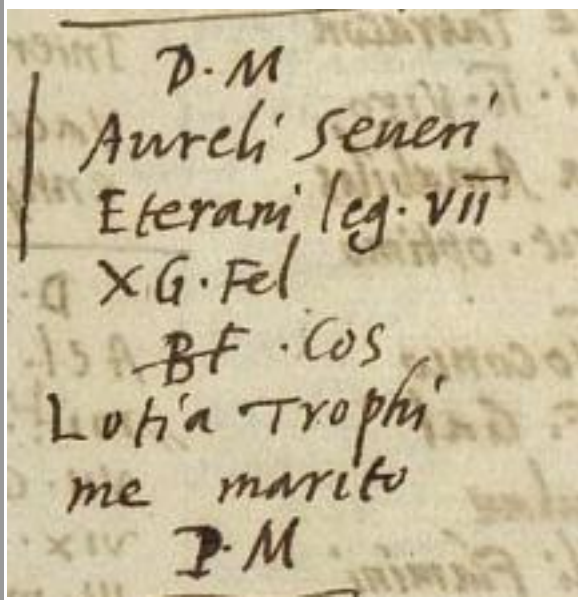 D. M
Aureli Seueri
Eterani leg. VII
XG. Fel
BF . Cos
Lolia Trophi
me marito
P. M